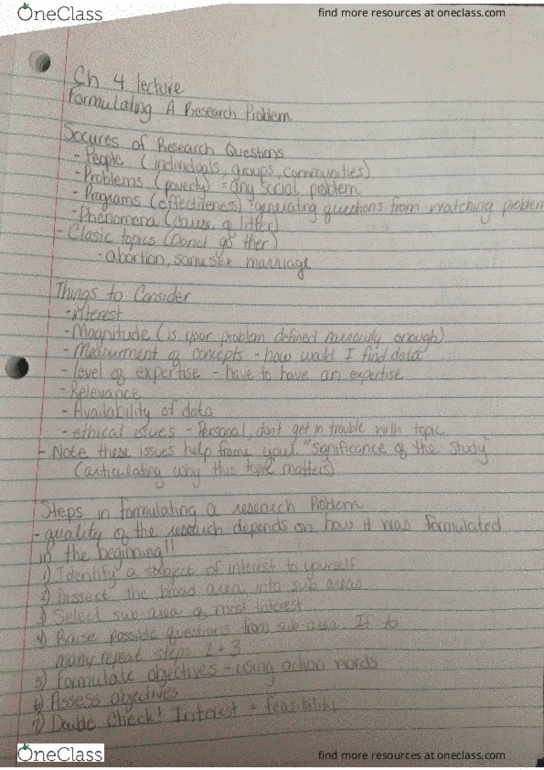 OneClass
find more resources at oneclass.com
Ch 4 lecture
Formulating A Research Problem
Socures of Research Questions
- People (individuals, groups, communities)
- Problems (poverty) = any social problem
- Programs (effectiveness) - generating questions from watching problem
- Phenomena (cause of litter)
- Clasic topics (Donot go ther)
- abortion, same sex marriage
Things to Consider
- interest
- Magnitude (is your problem defined enough)
- Measurment of concepts - how would I find data
- level of expertise - have to have an expertise
- Relevance
- Availability of data
- ethical issues - Personal, dont get in trouble with topic
- Note these issues help frame your "significance of the study"
(articulating why this topic matters)
Steps in formulating a research Problem
- quality of the research depends on how it was formulated
in the beginning!!
1) Identify a subject of interest to yourself
2) Dissect the broad area into sub areas
3) Select sub-area of most interest
4) Raise possible questions from sub-area. If to
many repeat steps 2 + 3
5) formulate objectives - using action words
6) Assess objectives
7) Double Check! Interest + feasibility
OneClass
find more resources at oneclass.com